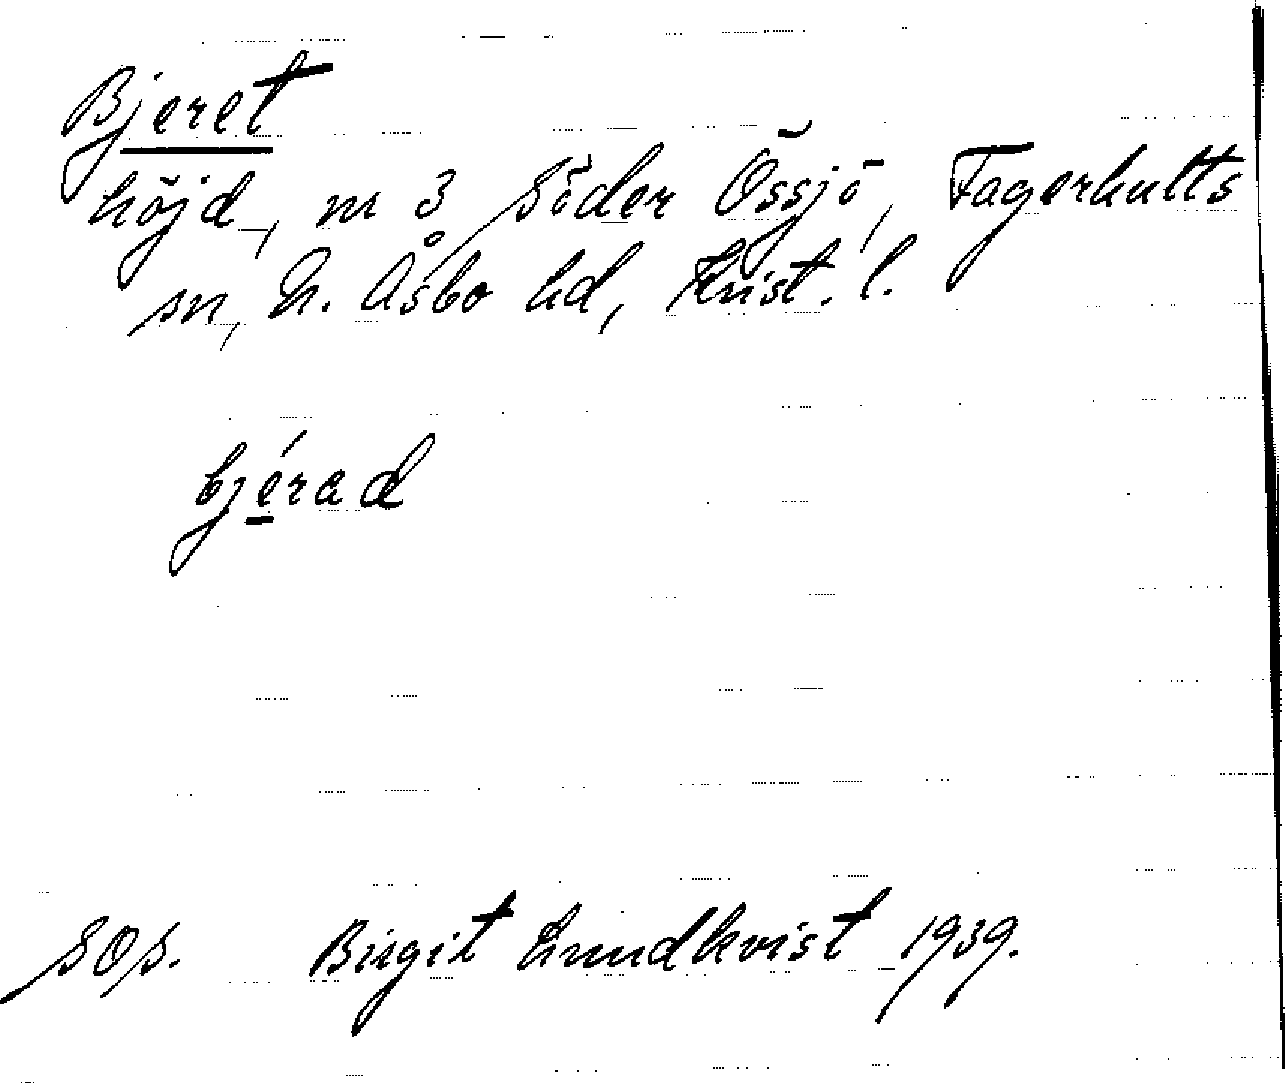 Bjeret
höjd, m 3 Söder Össjö, Fagerhults
sn, N. Åsbo hd, Krist. l.
bjérad
sOs. Birgit Lundkvist 1939.